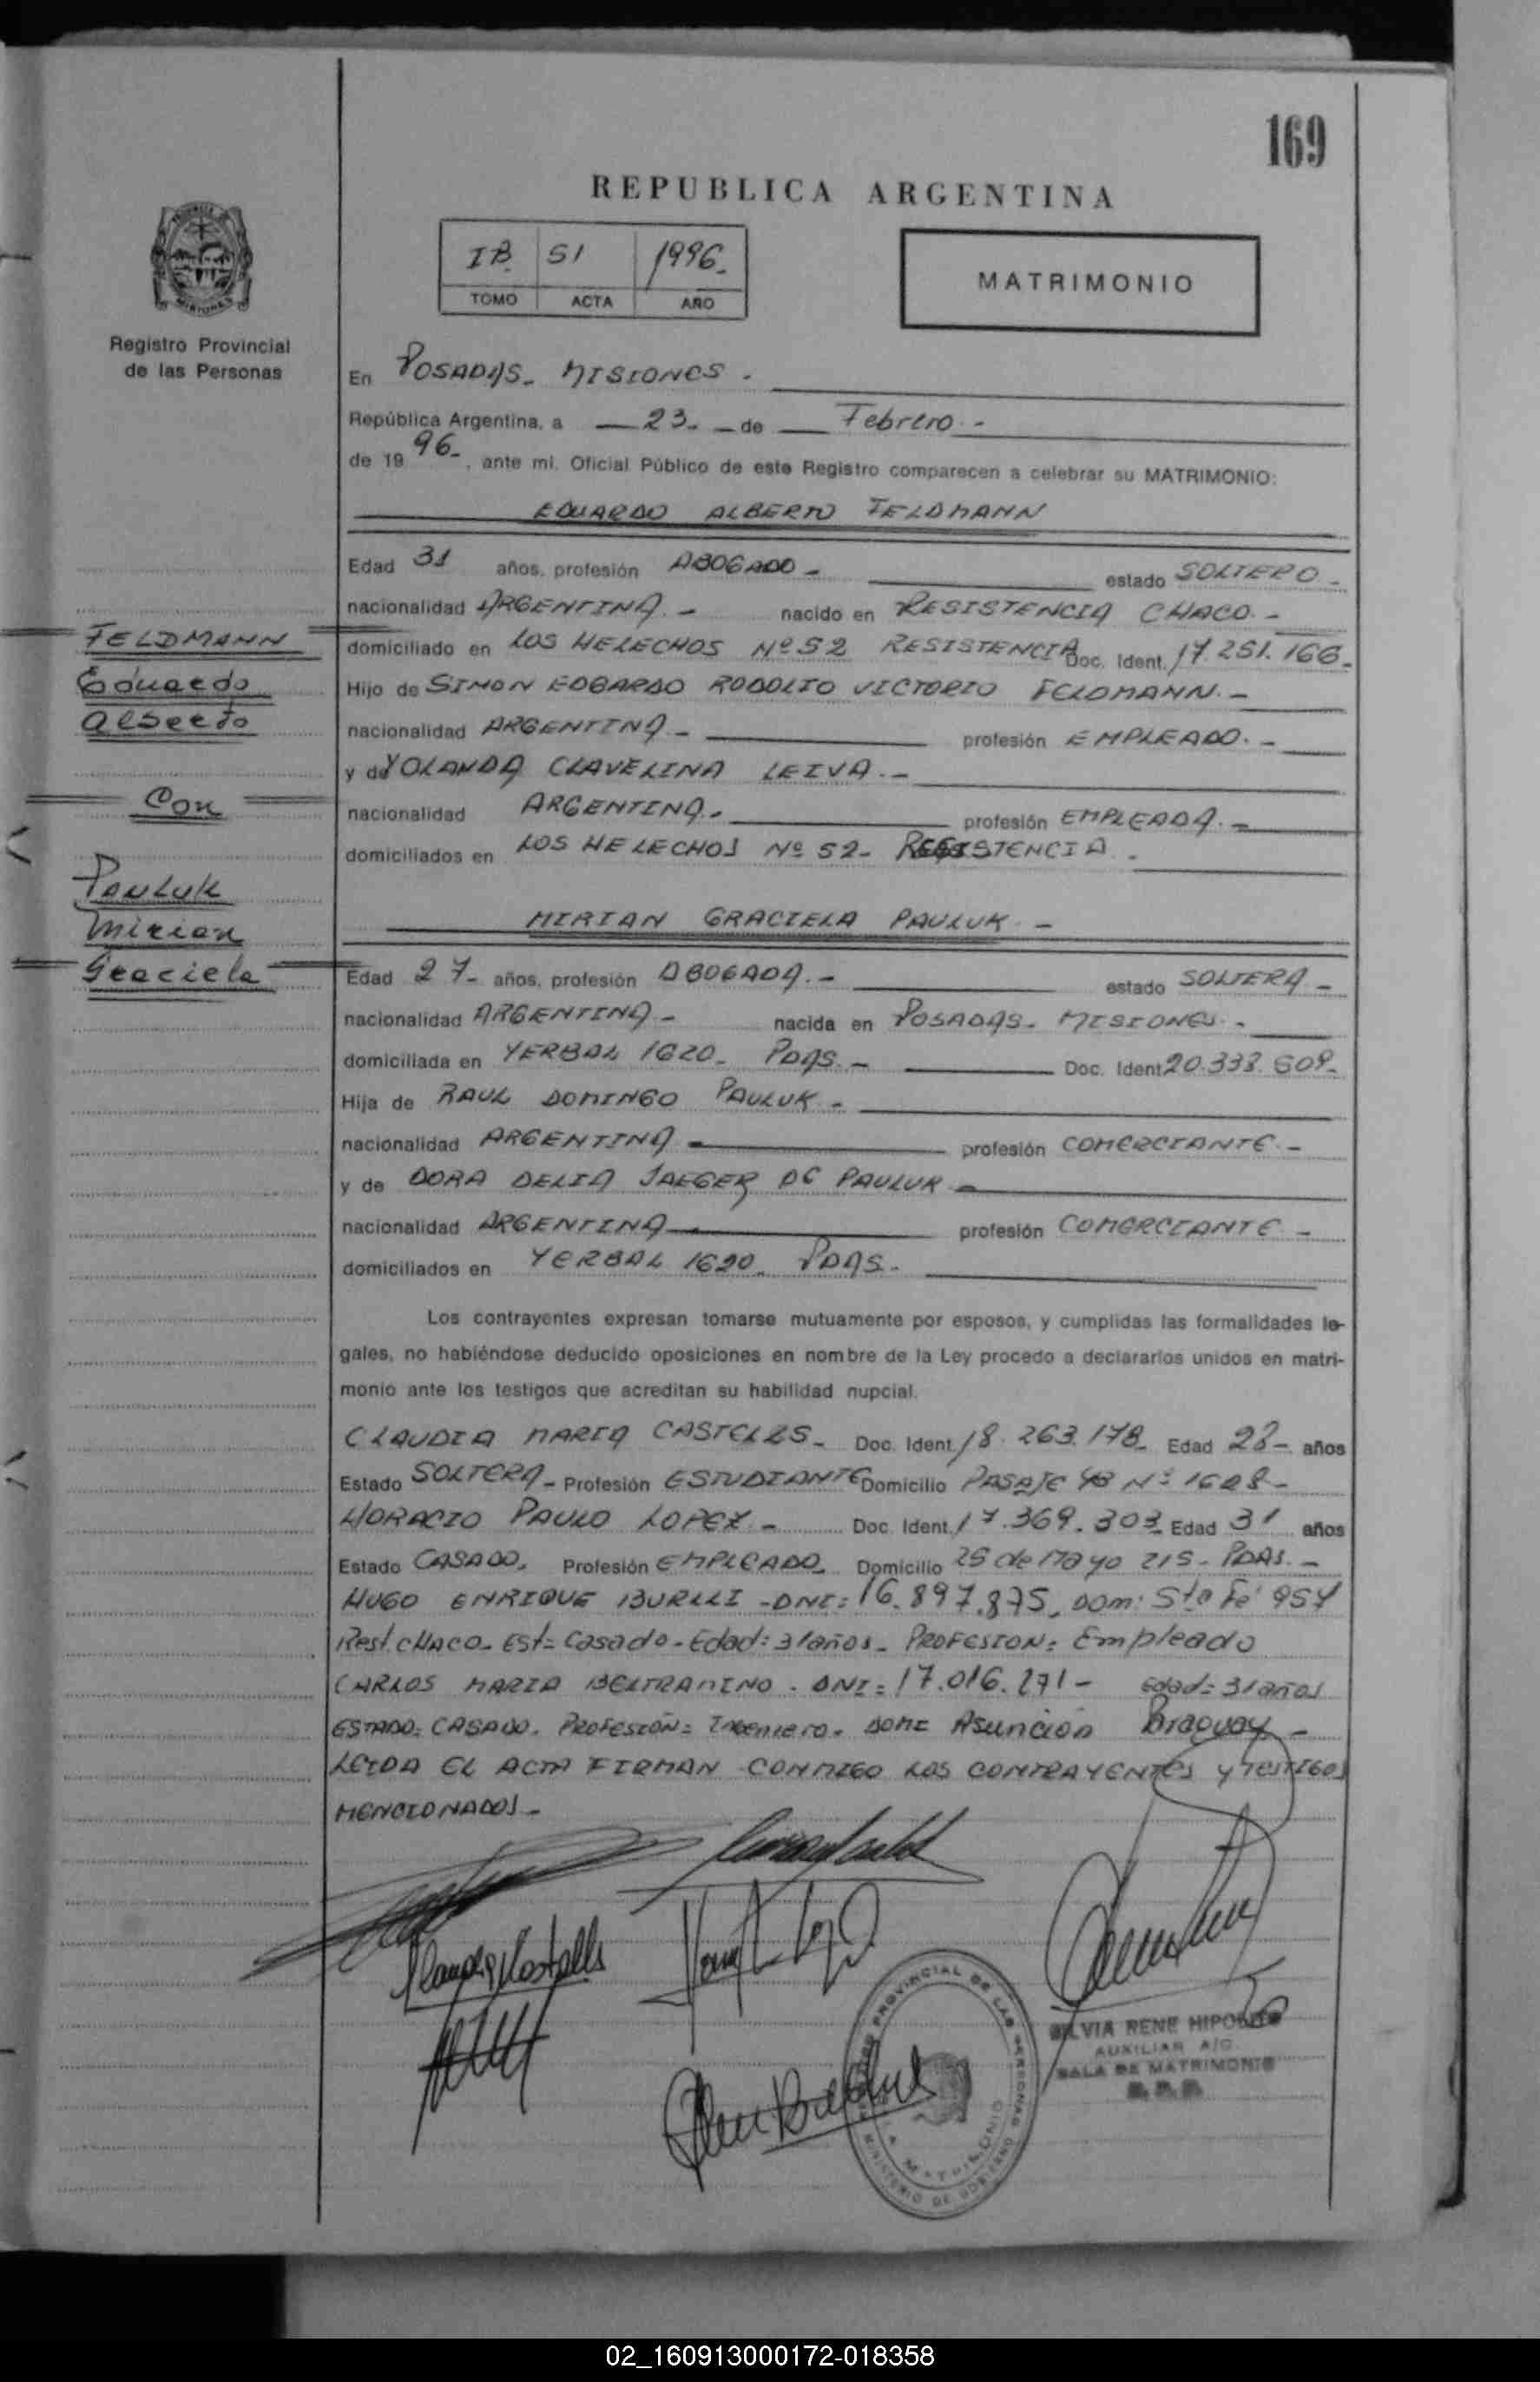 169
REPUBLICA ARGENTINA
IB. 51 1996.-
TOMO ACTA AÑO
MATRIMONIO
Registro Provincial
de las Personas
En POSADAS.- MISIONES.-
República Argentina, a 23.- de Febrero.-
de 1996.-, ante mi, Oficial Público de este Registro comparecen a celebrar su MATRIMONIO:
EDUARDO ALBERTO FELDMANN
Edad 31 años, profesión ABOGADO.- estado SOLTERO.-
nacionalidad ARGENTINA.- nacido en RESISTENCIA CHACO.-
domiciliado en LOS HELECHOS Nº 52 RESISTENCIA Doc. Ident. 17.251.166.-
Hijo de SIMON EDGARDO RODOLFO VICTORIO FELDMANN.-
nacionalidad ARGENTINA.- profesión EMPLEADO.-
y de YOLANDA CLAVELINA LEIVA.-
nacionalidad ARGENTINA.- profesión EMPLEADA.-
domiciliados en LOS HELECHOS Nº 52- RESISTENCIA.-
FELDMANN
Eduardo
Alberto
Con
Pauluk
Mirian
Graciela
MIRIAN GRACIELA PAULUK.-
Edad 27- años, profesión ABOGADA.- estado SOLTERA.-
nacionalidad ARGENTINA.- nacida en POSADAS.- MISIONES.-
domiciliada en YERBAL 1620.- PDAS.- Doc. Ident 20.338.509.-
Hija de RAUL DOMINGO PAULUK.-
nacionalidad ARGENTINA.- profesión COMERCIANTE.-
y de DORA DELIA JAEGER DE PAULUK.-
nacionalidad ARGENTINA profesión COMERCIANTE.-
domiciliados en YERBAL 1620.- PDAS.-
Los contrayentes expresan tomarse mutuamente por esposos, y cumplidas las formalidades le-
gales, no habiéndose deducido oposiciones en nombre de la Ley procedo a declararlos unidos en matri-
monio ante los testigos que acreditan su habilidad nupcial.
CLAUDIA MARIA CASTELLS.- Doc. Ident. 18.263.178.- Edad 28- años
Estado SOLTERA- Profesión ESTUDIANTE Domicilio PASAJE Nº 1628-
HORACIO PAULO LOPEZ.- Doc. Ident. 17.369.303.- Edad 31 años
Estado CASADO. Profesión EMPLEADO. Domicilio 25 de Mayo 215- PDAS.-
HUGO ENRIQUE BURLLI -DNI: 16.897.875. DOM: Sta Fé 954
Rest. CHACO- Est= Casado- Edad: 31 años- PROFESION: Empleado
CARLOS MARIA BELTRAMINO. DNI: 17.016.271- Edad= 31 años
ESTADO: CASADO. PROFESIÓN= Ingeniero. DOM= Asunción Paraguay-
LEIDA EL ACTA FIRMAN CONMIGO LOS CONTRAYENTES y TESTIGOS
MENCIONADOS.-
SILVIA RENE HIPOLITO
AUXILIAR A/C
SALA DE MATRIMONIO
REGISTRO PROVINCIAL DE LAS PERSONAS
MATRIMONIO
MINISTERIO DE GOBIERNO
02_160913000172-018358